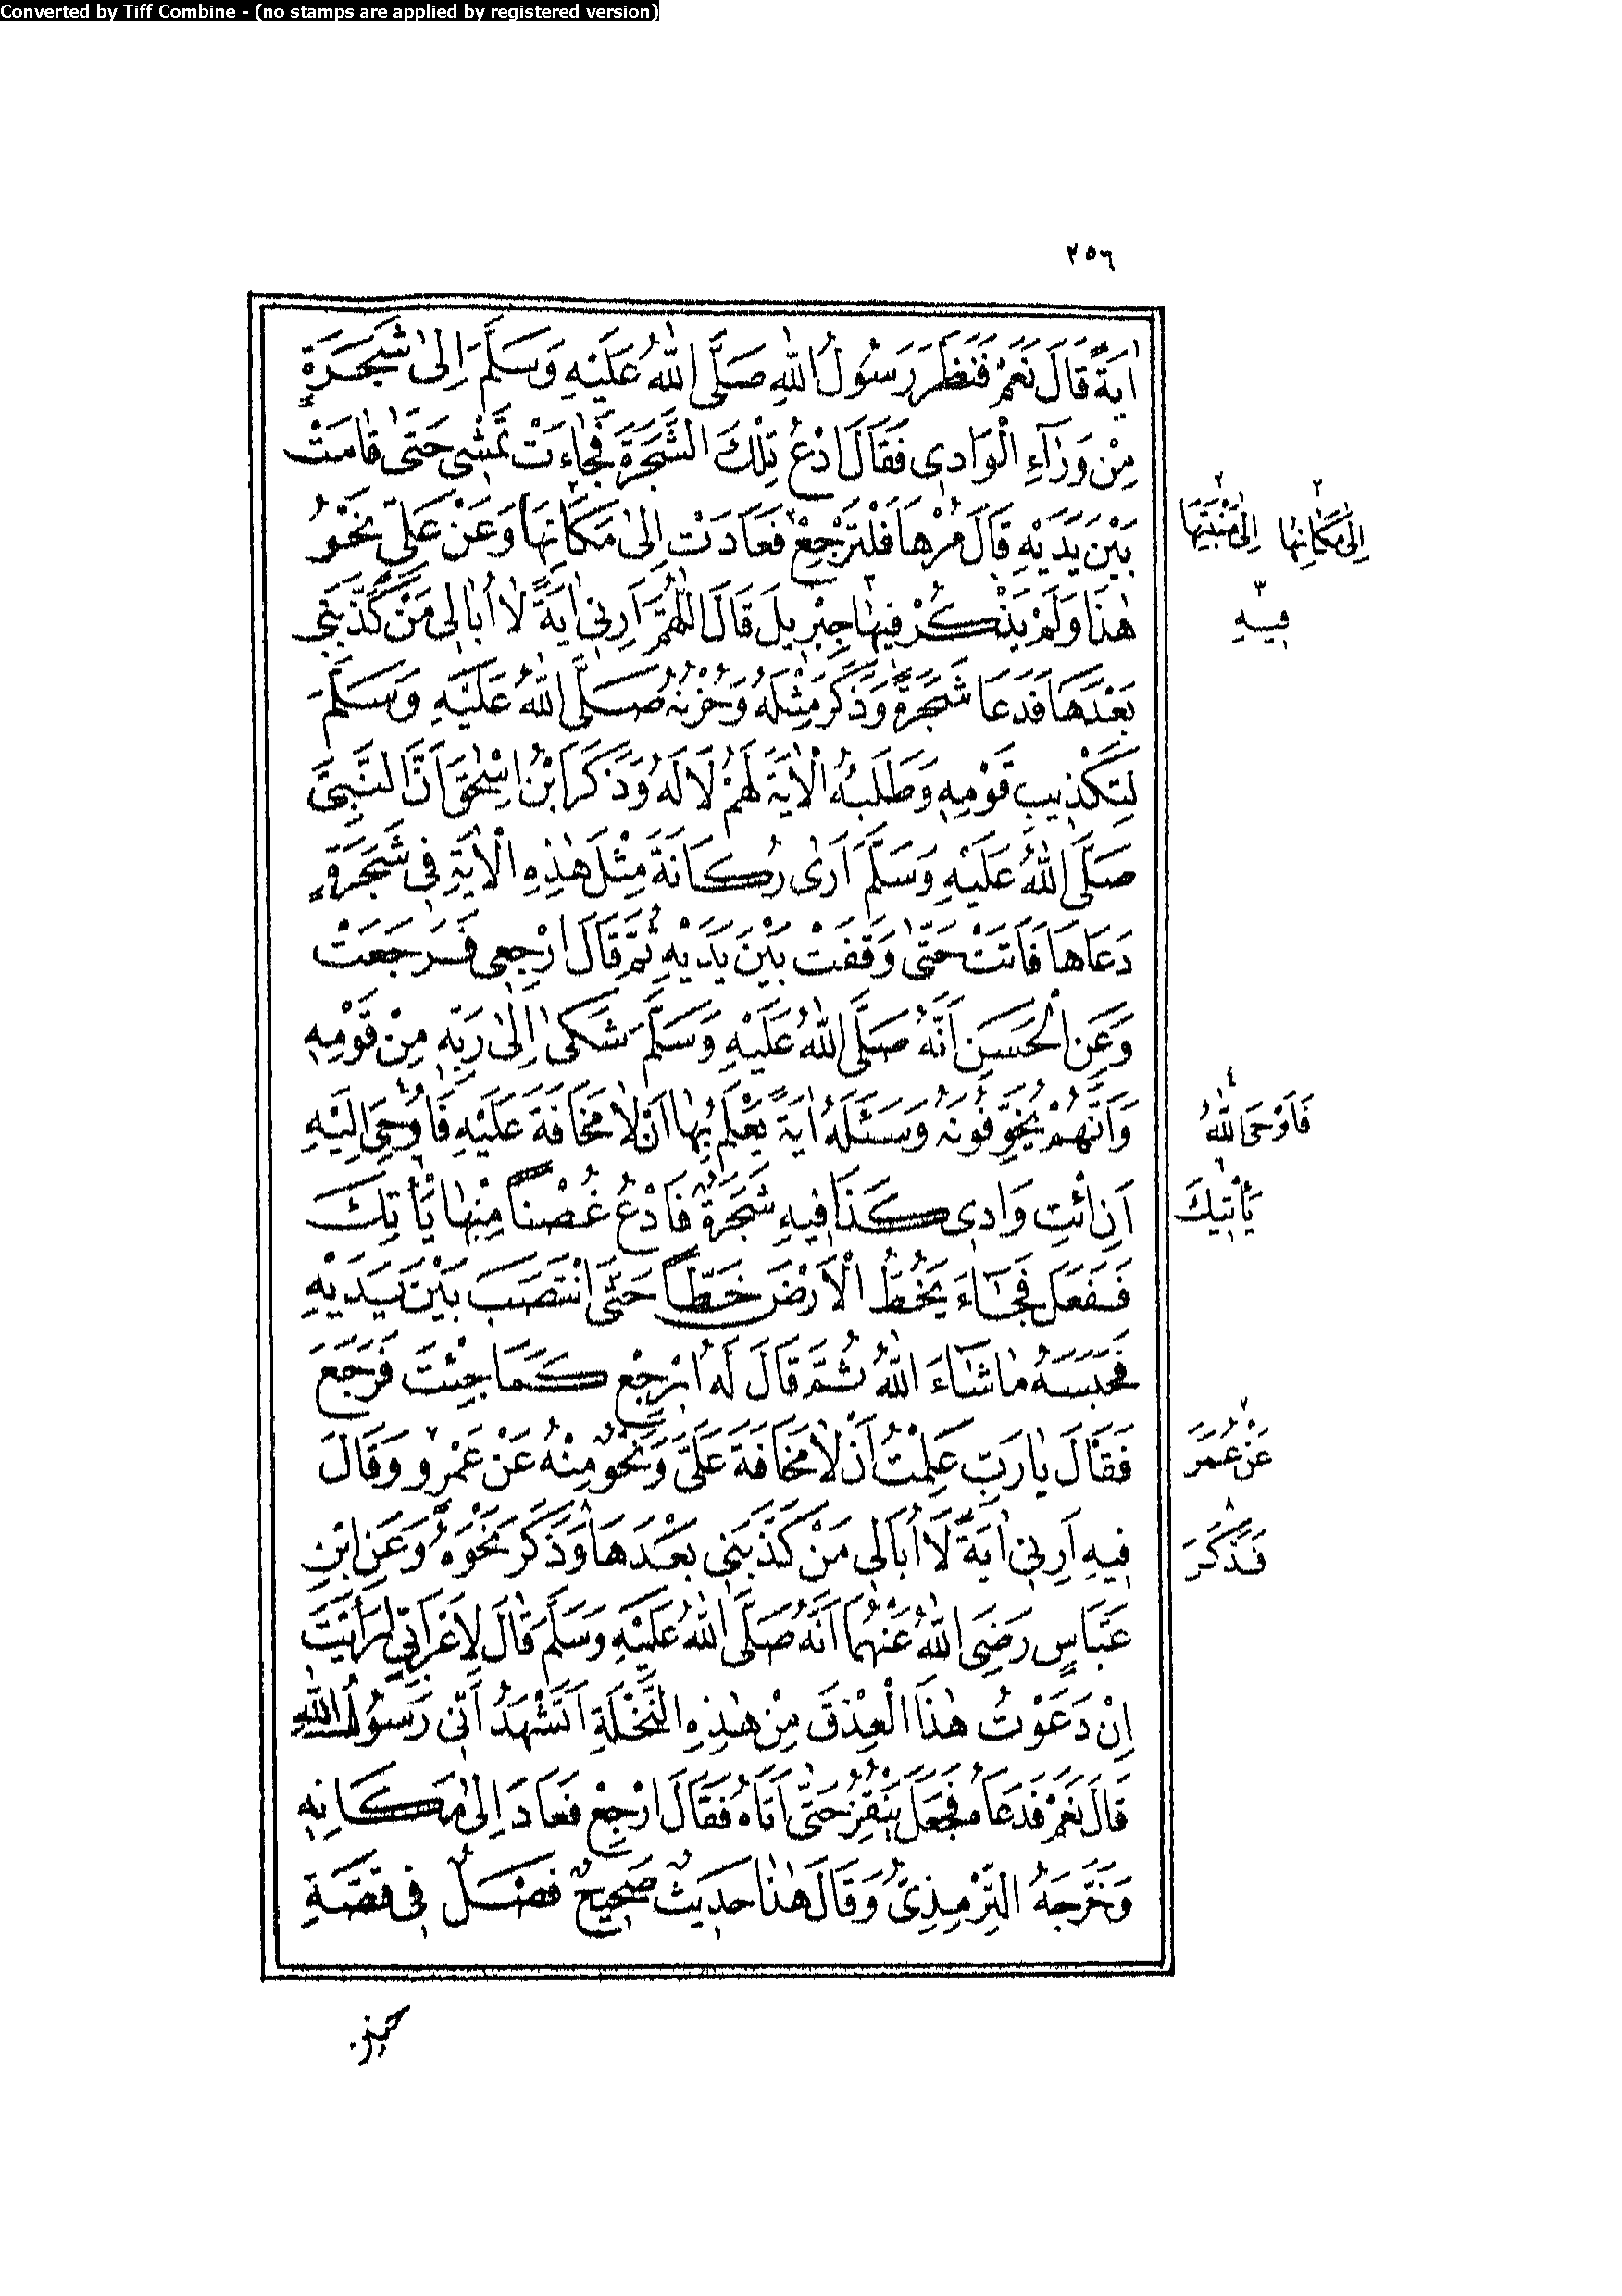 Converted by Tiff Combine - (no stamps are applied by registered version)
٢٥٦
اٰيَةً قَالَ نَعَمْ فَنَظَرَ رَسُولُ اللّٰهِ صَلَّى اللّٰهُ عَلَيْهِ وَسَلَّمَ اِلىٰ شَجَرَةٍ
مِنْ وَرَآءِ الْوَادِى فَقَالَ ادْعُ تِلْكَ الشَّجَرَةَ فَجَاءَتْ تَمْشِى حَتّٰى قَامَتْ
بَيْنَ يَدَيْهِ قَالَ مُرْهَا فَلْتَرْجِعْ فَعَادَتْ اِلىٰ مَكَانِهَا وَعَنْ عَلِىٍّ نَحْوُ
هٰذَا وَلَمْ يَذْكُرْ فِيهَا جِبْرِيلَ قَالَ اللّٰهُمَّ اَرِنِى اٰيَةً لَا اُبَالِى مَنْ كَذَّبَنِى
بَعْدَهَا فَدَعَا شَجَرَةً وَذَكَرَ مِثْلَهُ وَحُزْنُهُ صَلَّى اللّٰهُ عَلَيْهِ وَسَلَّمَ
لِتَكْذِيبِ قَوْمِهِ وَطَلَبُهُ الْاٰيَةَ لَهُمْ لَا لَهُ وَذَكَرَ ابْنُ اِسْحٰقَ اَنَّ النَّبِىَّ
صَلَّى اللّٰهُ عَلَيْهِ وَسَلَّمَ اَرٰى رُكَانَةَ مِثْلَ هٰذِهِ الْاٰيَةِ فِى شَجَرَةٍ
دَعَاهَا فَاَتَتْ حَتّٰى وَقَفَتْ بَيْنَ يَدَيْهِ ثُمَّ قَالَ ارْجِعِى فَرَجَعَتْ
وَعَنِ الْحَسَنِ اَنَّهُ صَلَّى اللّٰهُ عَلَيْهِ وَسَلَّمَ شَكىٰ اِلىٰ رَبِّهِ مِنْ قَوْمِهِ
وَاَنَّهُمْ يُخَوِّفُونَهُ وَسَئَلَهُ اٰيَةً يَعْلَمُ بِهَا اَنْ لَا مَخَافَةَ عَلَيْهِ فَاُوحِىَ اِلَيْهِ
اَنِ ائْتِ وَادِى كَذَا فِيهِ شَجَرَةٌ فَادْعُ غُصْنًا مِنْهَا يَأْتِكَ
فَفَعَلَ فَجَآءَ يَخُطُّ الْاَرْضَ خَطًّا حَتَّى انْتَصَبَ بَيْنَ يَدَيْهِ
فَحَبَسَهُ مَا شَآءَ اللّٰهُ ثُمَّ قَالَ لَهُ ارْجِعْ كَمَا جِئْتَ فَرَجَعَ
فَقَالَ يَا رَبِّ عَلِمْتُ اَنْ لَا مَخَافَةَ عَلَىَّ وَنَحْوٌ مِنْهُ عَنْ عَمْرٍو وَقَالَ
فِيهِ اَرِنِى اٰيَةً لَا اُبَالِى مَنْ كَذَّبَنِى بَعْدَهَا وَذَكَرَ نَحْوَهُ وَعَنِ ابْنِ
عَبَّاسٍ رَضِىَ اللّٰهُ عَنْهُمَا اَنَّهُ صَلَّى اللّٰهُ عَلَيْهِ وَسَلَّمَ قَالَ لِاَعْرَابِىٍّ اَرَاَيْتَ
اِنْ دَعَوْتُ هٰذَا الْعِذْقَ مِنْ هٰذِهِ النَّخْلَةِ اَتَشْهَدُ اَنِّى رَسُولُ اللّٰهِ
قَالَ نَعَمْ فَدَعَاهُ فَجَعَلَ يَنْقُزُ حَتّٰى اَتَاهُ فَقَالَ ارْجِعْ فَعَادَ اِلىٰ مَكَانِهِ
وَخَرَّجَهُ التِّرْمِذِىُّ وَقَالَ هٰذَا حَدِيثٌ صَحِيحٌ فَصْلٌ فِى قِصَّةِ
٢ اِلىٰ مَكَانِهَا ٢ اِلىٰ مَنْبَتِهَا
٣ فِيهِ
٤ فَاَوْحَى اللّٰهُ
٦ يَأْتِيكَ
٧ عَنْ عُمَرَ
٨ فَذَكَرَ